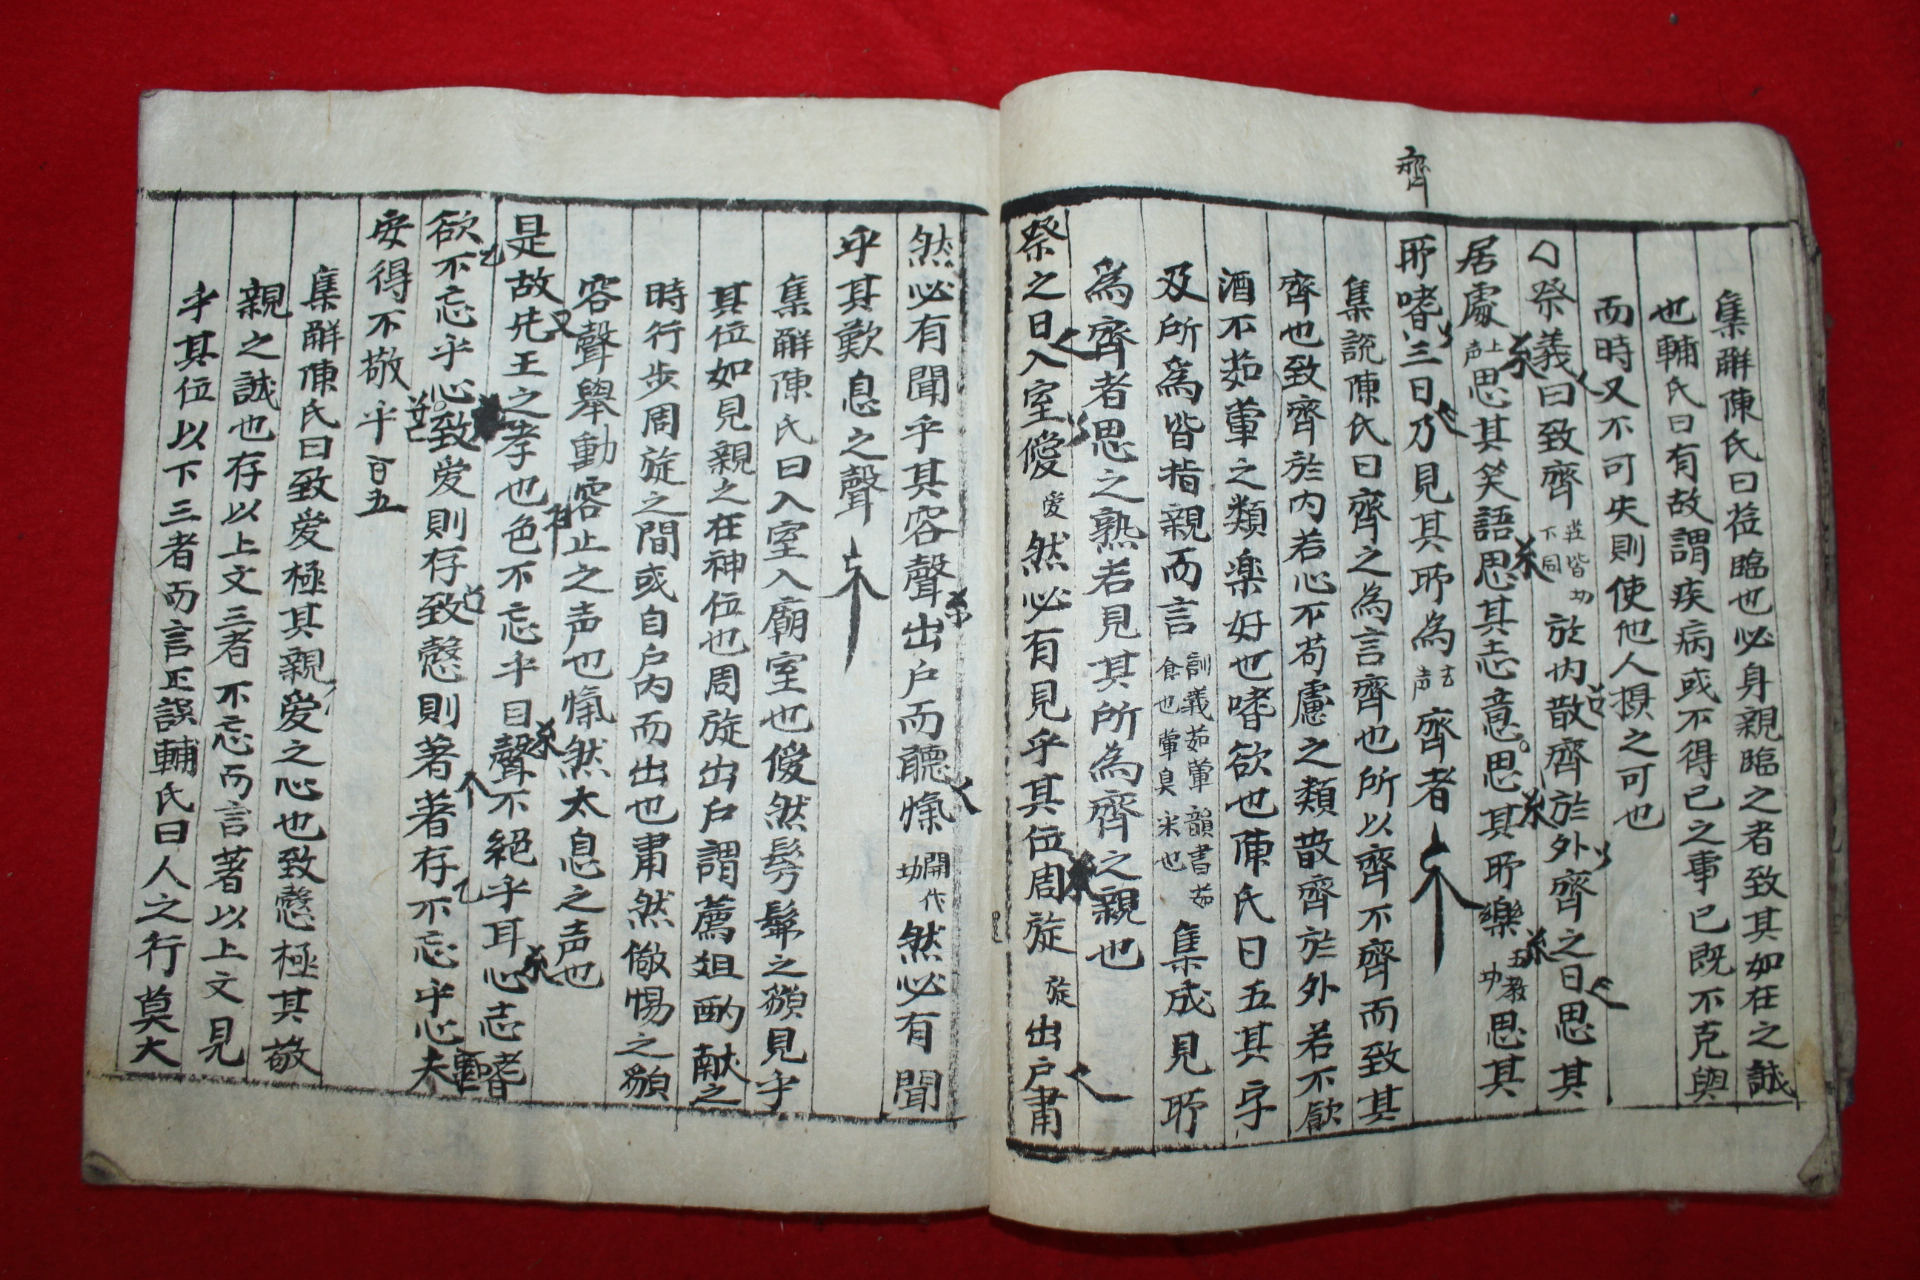 齊
集解陳氏曰莅臨也必身親臨之者致其如在之誠
也輔氏曰有故謂疾病或不得已之事已既不克與
而時又不可失則使他人摂之可也
祭義曰致齊 荘皆切下同 於内散齊於外齊之日思其
居處 上声 思其笑語思其志意思其所樂 五教切 思其
所嗜三日乃見其所為 去声 齊者
集説陳氏曰齊之為言齊也所以齊不齊而致其
齊也致齊於内若心不苟慮之類散齊於外若不飲
酒不茹葷之類楽好也嗜欲也陳氏曰五其字
及所為皆指親而言 訓義茹葷韻書茹食也葷臭米也 集成見所
為齊者思之熟若見其所為齊之親也
祭之日入室僾 愛 然必有見乎其位周旋 旋 出戸肅
然必有聞乎其容聲出戸而聽愾 開代切 然必有聞
乎其歎息之聲
集解陳氏曰入室入廟室也僾然髣髴之貌見乎
其位如見親之在神位也周旋出戸謂薦俎酌献之
時行步周旋之間或自户内而出也肅然儆惕之貌
容聲舉動容止之声也愾然太息之声也
是故先王之孝也色不忘乎目聲不絶乎耳心志嗜
欲不忘乎心致愛則存致慤則著著存不忘乎心夫
安得不敬乎 百五
集解陳氏曰致愛極其親愛之心也致慤極其敬
親之誠也存以上文三者不忘而言著以上文見
乎其位以下三者而言正誤輔氏曰人之行莫大